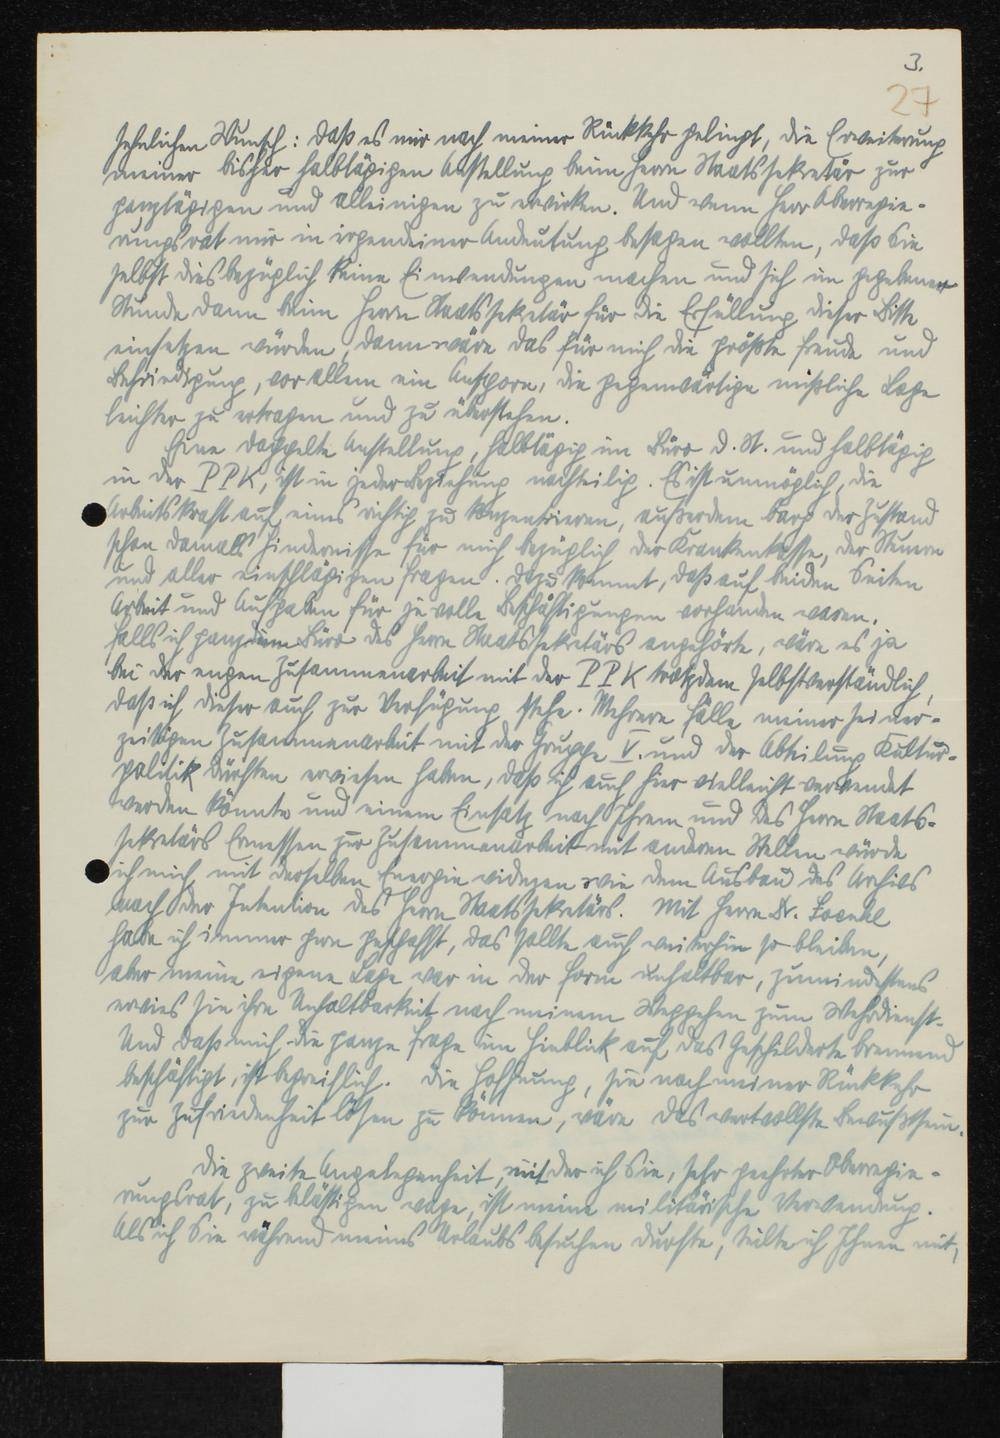 3.
27
sehnlichen Wunsch: daß es mir nach meiner Rückkehr gelingt, die Erweiterung
meiner bisher halbtägigen Anstellung beim Herrn Staatssekretär zur
ganztägigen und alleinigen zu erwirken. Und wenn Herr Oberregie-
rungsrat mir in irgendeiner Andeutung besagen wollten, daß Sie
selbst diesbezüglich keine Einwendungen machen und sich im gegebenen
Stunde dann beim Herrn Staatssekretär für die Erfüllung dieser Bitte
einsetzen würden, dann wäre das für mich die größte Freude und
Befriedigung, vor allem ein Ansporn, die gegenwärtige mißliche Lage
leichter zu ertragen und zu überstehen.
Eine doppelte Anstellung, halbtägig im Büro d. St. und halbtägig
in der PPK, ist in jeder Beziehung nachteilig. Es ist unmöglich, die
Arbeitskraft auf eines richtig zu konzentrieren, außerdem barg der Zustand
schon damals Hindernisse für mich bezüglich der Krankenkasse, der Steuern
und aller einschlägigen Fragen. Dazu kommt, daß auf beiden Seiten
Arbeit und Aufgaben für je volle Beschäftigungen vorhanden waren.
Falls ich ganz dem Büro des Herrn Staatssekretärs angehörte, wäre es ja
bei der engen Zusammenarbeit mit der PPK trotzdem selbstverständlich,
daß ich dieser auch zur Verfügung stehe. Mehrere Fälle meiner seiner-
zeitigen Zusammenarbeit mit der Gruppe V. und der Abteilung Kultur-
politik dürften erwiesen haben, daß ich auch hier vielleicht verwendet
werden könnte und einem Einsatz nach Ihrem und des Herrn Staats-
sekretärs Ermessen zur Zusammenarbeit mit anderen Stellen würde
ich mich mit derselben Energie widmen wie dem Ausbau des Archivs
nach der Intention des Herrn Staatssekretärs. Mit Herrn Dr.
habe ich immer gern geschafft, das sollte auch weiterhin so bleiben,
aber meine eigene Lage war in der Form unhaltbar, zumindestens
erwies sie ihre Unhaltbarkeit nach meinem Weggehen zum Wehrdienst.
Und daß mich die ganze Frage im Hinblick auf das Geschilderte brennend
beschäftigt, ist begreiflich. Die Hoffnung, sie nach meiner Rückkehr
zur Zufriedenheit lösen zu können, wäre das wertvollste Bewußtsein.
Die zweite Angelegenheit, mit der ich Sie, sehr geehrter Oberregie-
rungsrat, zu belästigen wage, ist meine militärische Verwendung.
Als ich Sie während meines Urlaubs besuchen durfte, teilte ich Ihnen mit,